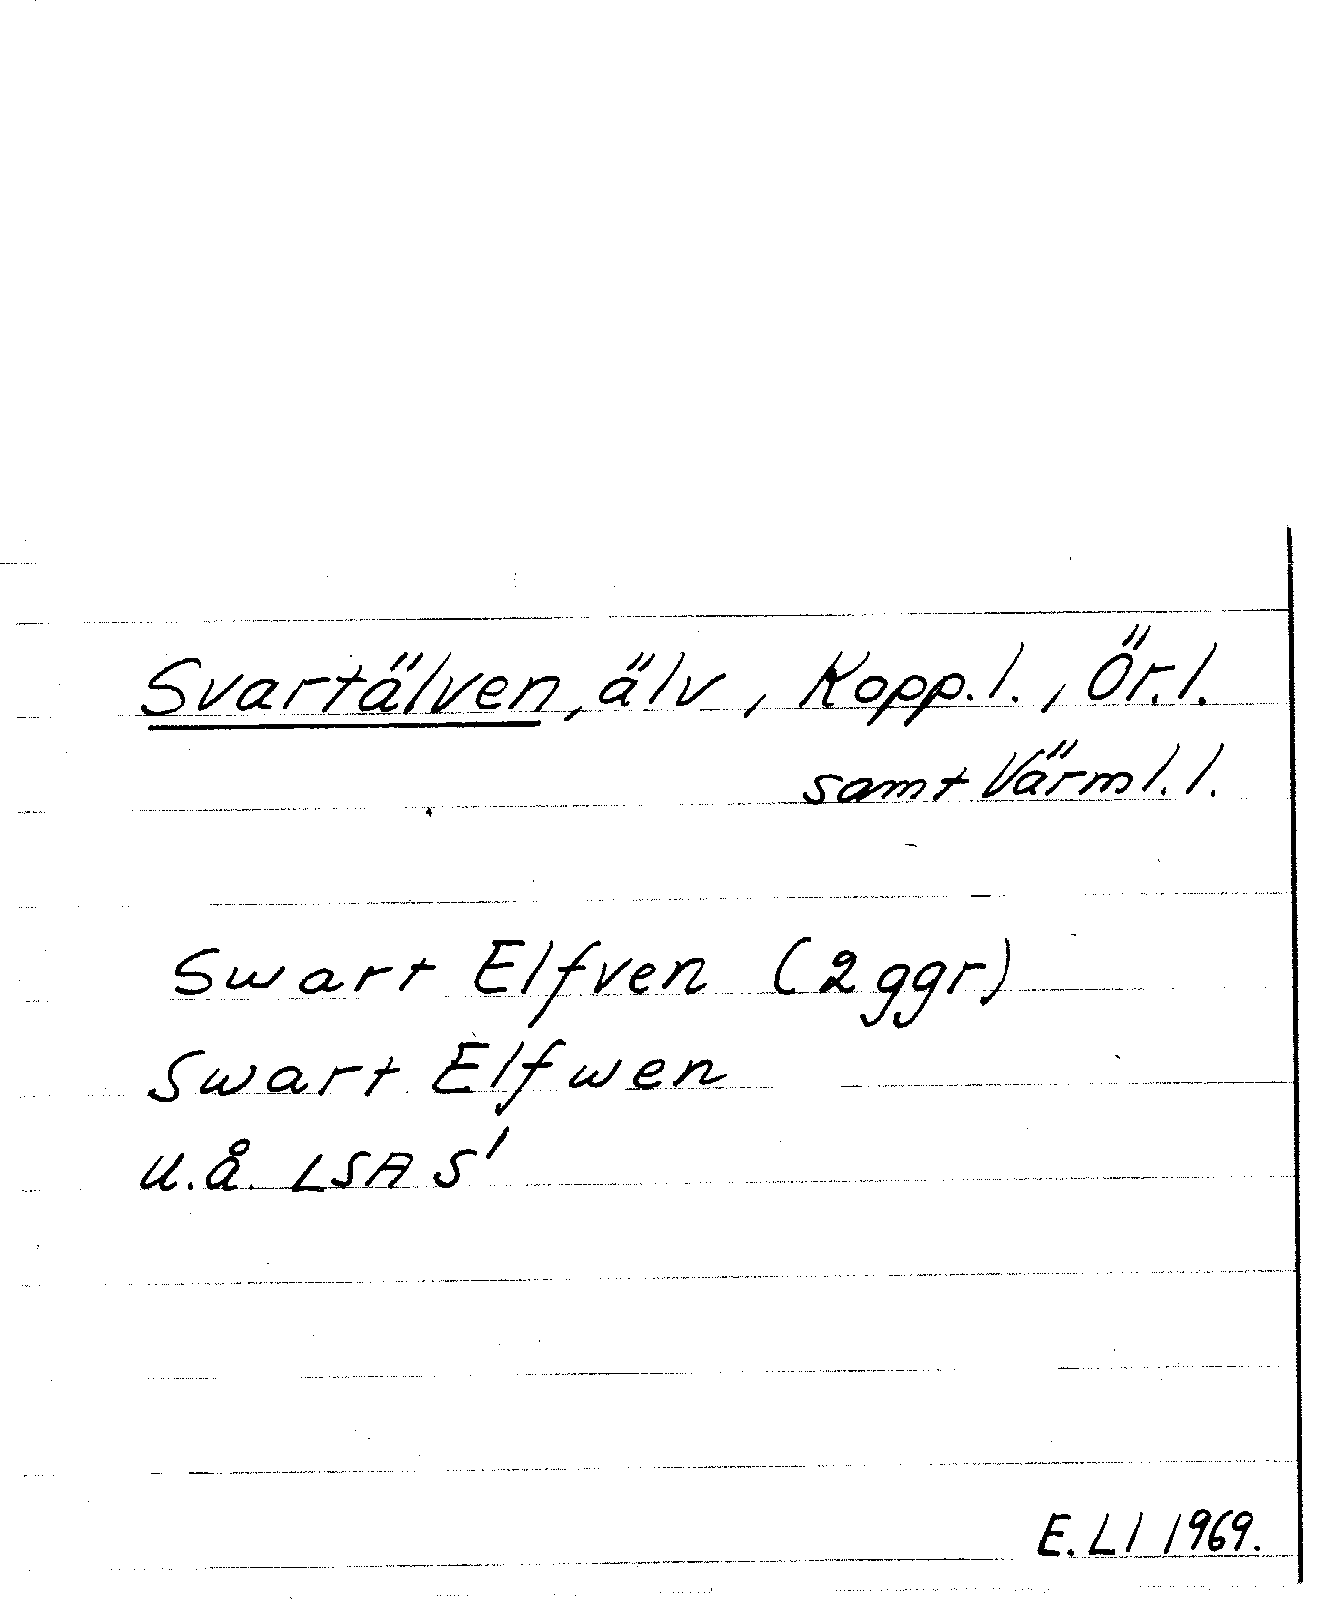 Svartälven, älv, Kopp.l., Ör.l.
samt Värml.l.
Swart Elfven (2 ggr)
Swart Elfwen
u.å. LSA S'
E.Ll 1969.